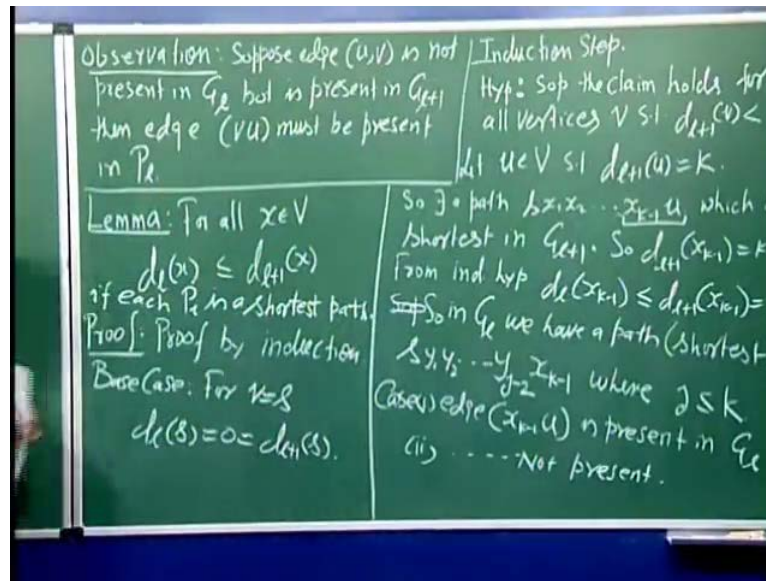 Observation: Suppose edge (u,v) is not
present in Gℓ but is present in Gℓ+1
then edge (vu) must be present
in Pℓ.
Lemma: For all x∈V
dℓ(x) ≤ dℓ+1(x)
if each Pℓ is a shortest path.
Proof: Proof by induction
Base Case: For v=s
dℓ(s)=0=dℓ+1(s).
Induction Step.
Hyp: Sop the claim holds for
all vertices v s.t dℓ+1(v)<
Let u∈V s.t dℓ+1(u)=k.
So ∃ a path s x1 x2 ... xk-1 u, which
shortest in Gℓ+1. So dℓ+1(xk-1)=k
From ind hyp dℓ(xk-1) ≤ dℓ+1(xk-1)=
So in Gℓ we have a path (shortest
s y1 y2 ... yj-2 xk-1 where j≤k
Case(i) edge (xk-1 u) is present in Gℓ
(ii) ..... Not present.